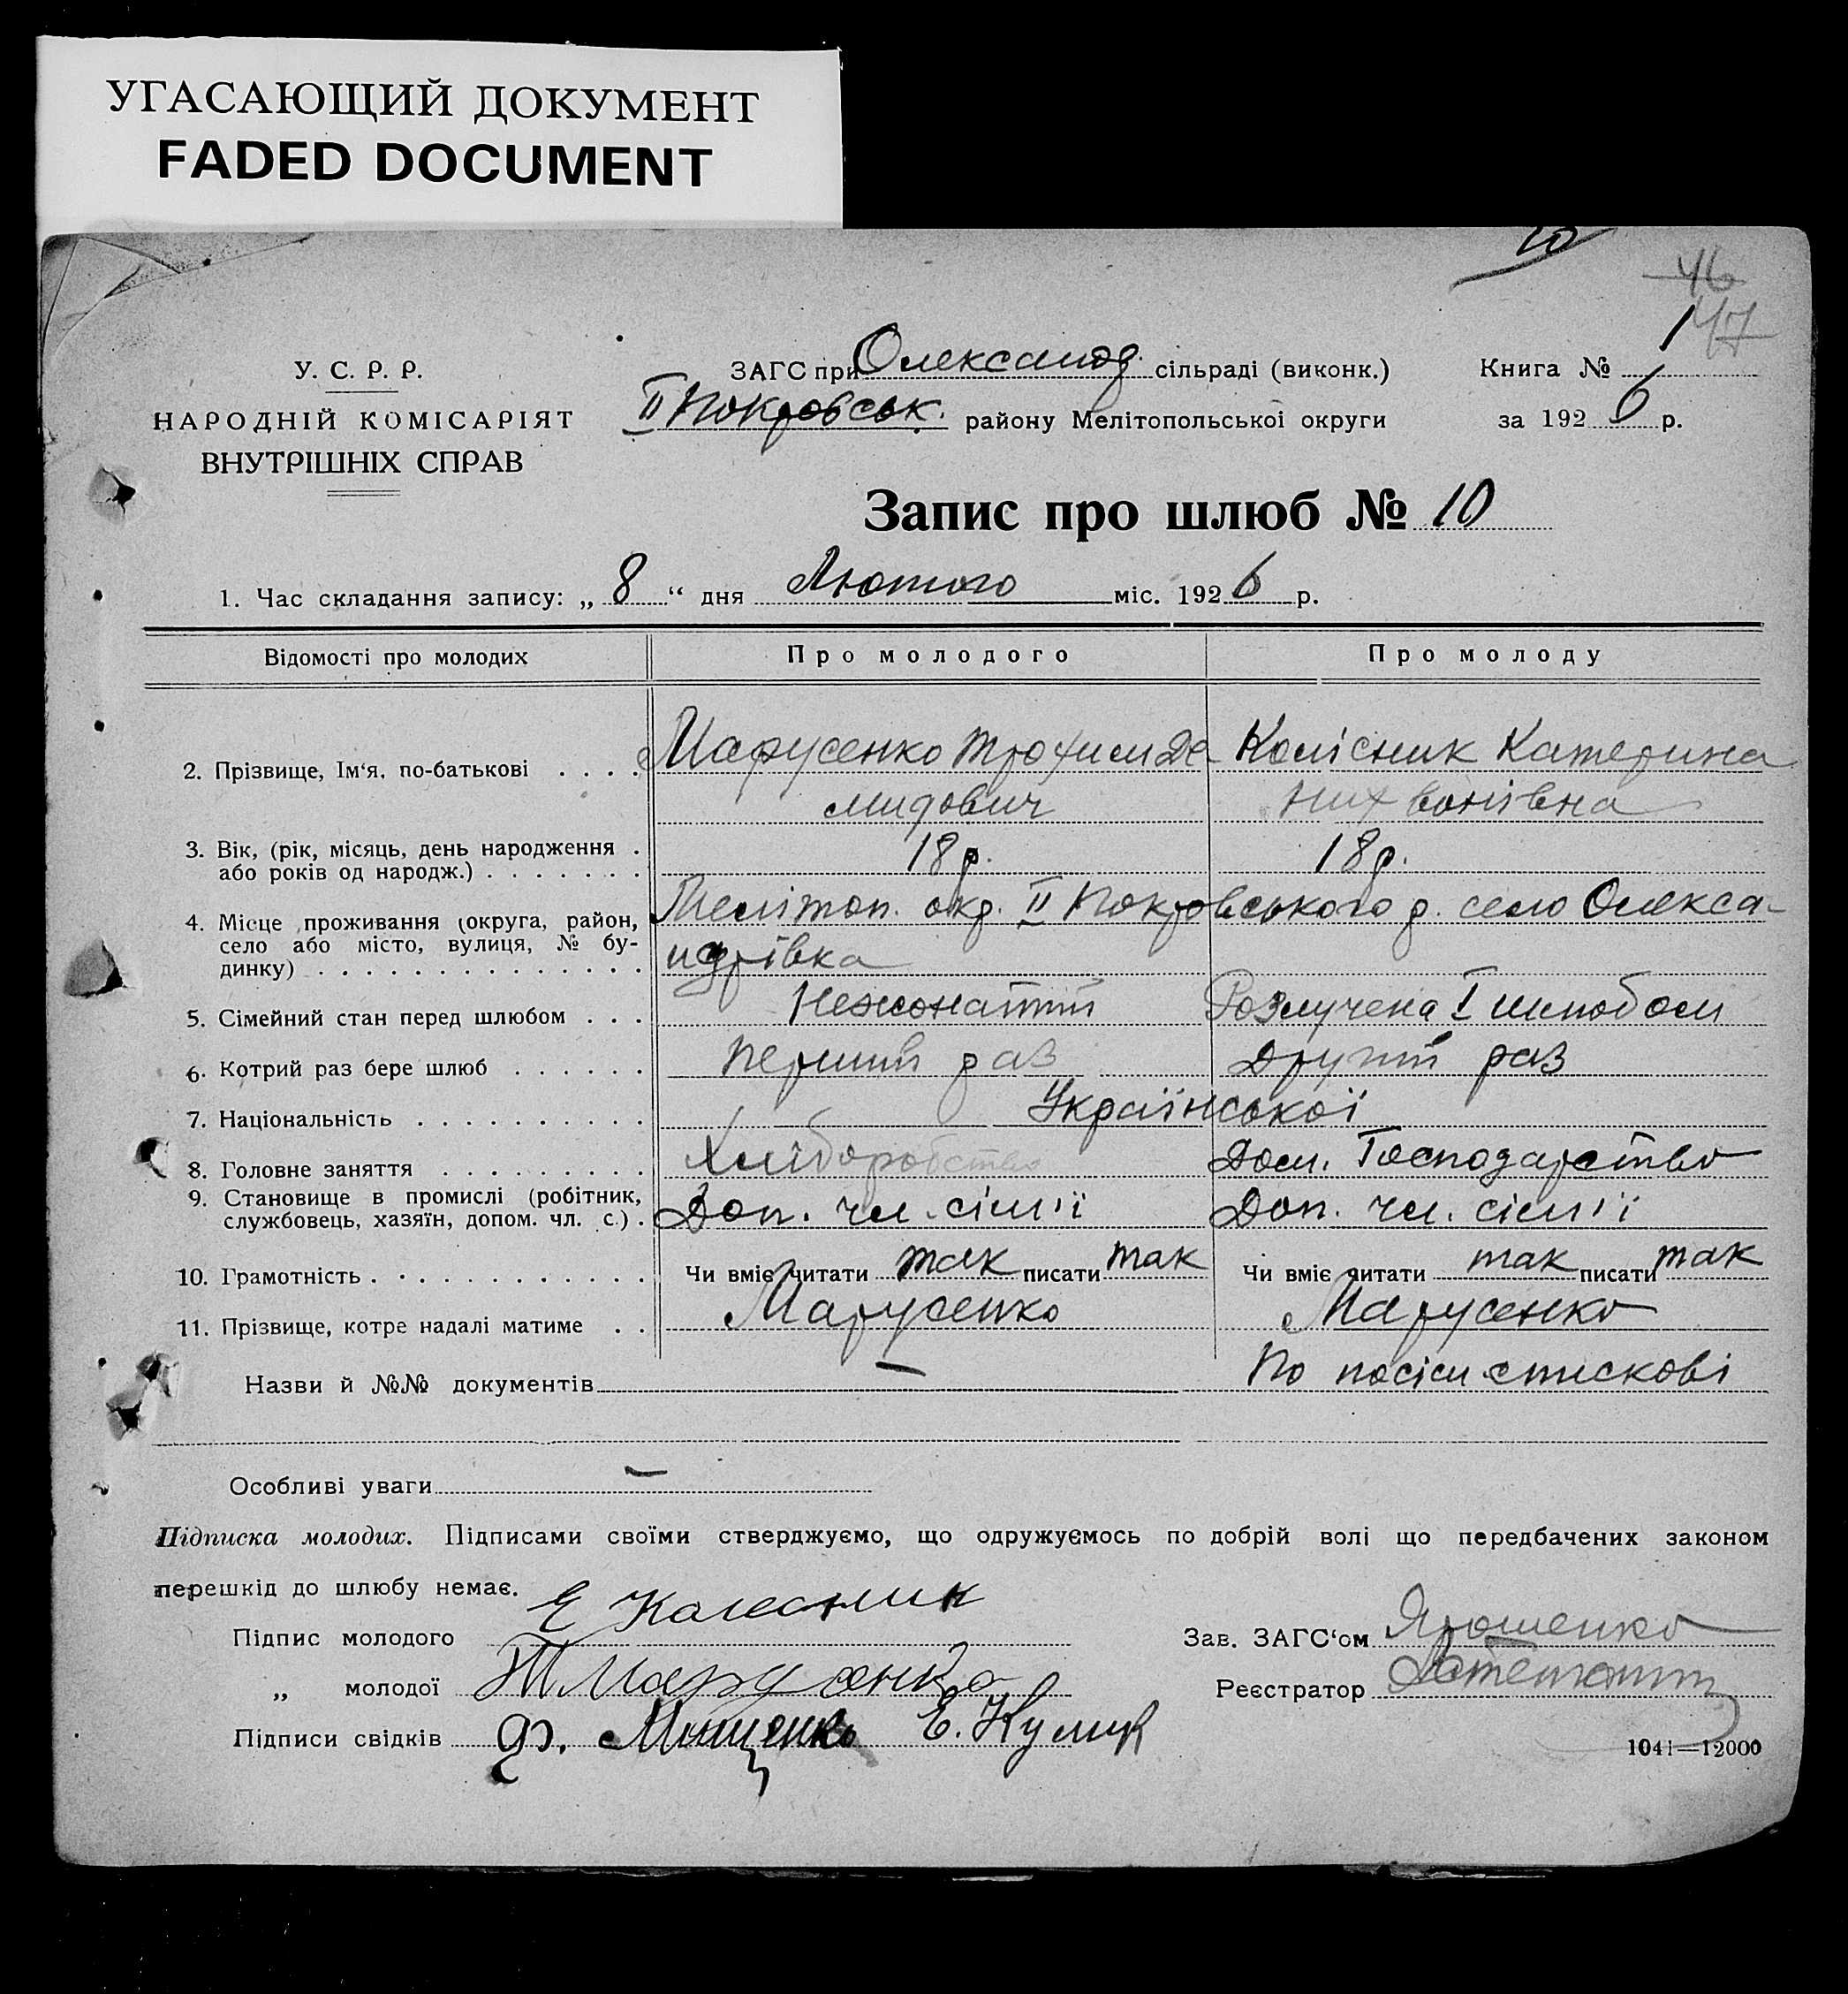 УГАСАЮЩИЙ ДОКУМЕНТ
FADED DOCUMENT
10
46
47
У. С. Р. Р.
НАРОДНІЙ КОМІСАРІЯТ
ВНУТРІШНІХ СПРАВ
ЗАГС при Олександ. сільраді (виконк.)
II Покровськ. району Мелітопольської округи
Книга № 1
за 1926 р.
Запис про шлюб № 10
1. Час складання запису: „ 8 “ дня Лютого міс. 1926 р.
Відомості про молодих Про молодого Про молоду
2. Прізвище, Ім‘я, по-батькові . . . . Марусенко Трохим Де- Колісник Катерина
мидович Нихвонівна
3. Вік, (рік, місяць, день народження . 18 р. 18 р.
або років од народж.) . . . . . . .
4. Місце проживання (округа, район, Мелітоп. окр. II Покровського р. село Олекса-
село або місто, вулиця, № бу-
динку) . . . . . . . . . . . . . . ндрівка
5. Сімейний стан перед шлюбом . . . Нежонатий Розлучена I шлюбом
6. Котрий раз бере шлюб . . . . . . Перший раз Другий раз
7. Національність . . . . . . . . . . Української
8. Головне заняття . . . . . . . . . Хліборобство Дом. Господарство
9. Становище в промислі (робітник,
службовець, хазяїн, допом. чл. с.) . Доп. чл. сім'ї Доп. чл. сім'ї
10. Грамотність . . . . . . . . . . . . Чи вміє читати так писати так Чи вміє читати так писати так
11. Прізвище, котре надалі матиме . . Марусенко Марусенко
Назви й №№ документів — По посім. спискові
Особливі уваги —
Підписка молодих. Підписами своїми стверджуємо, що одружуємось по добрій волі що передбачених законом
перешкід до шлюбу немає.
Підпис молодого Е Колесник
„ молодої Т Марусенко
Підписи свідків Ф. Мищенко Е. Кулик
Зав. ЗАГС‘ом Ярошенко
Реєстратор
1041—12000